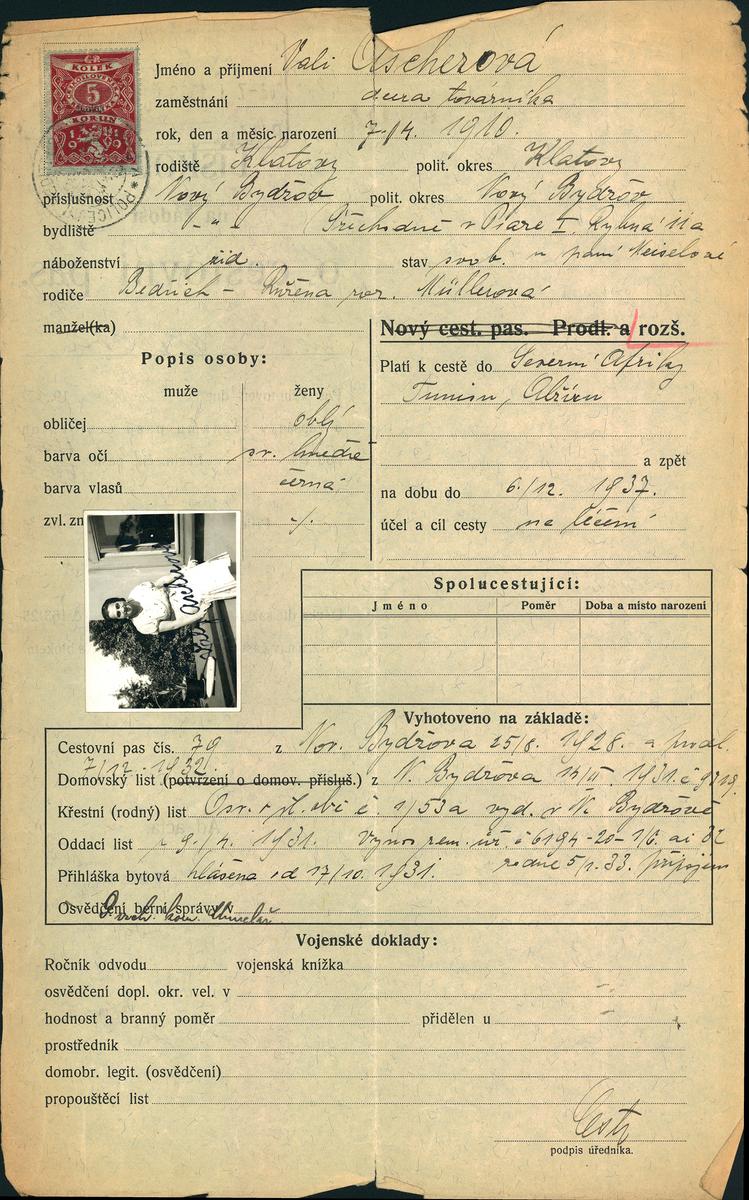 ČR.
KOLEK
5
KORUN
1919
POLICE
Jméno a příjmení Vali Ascherová
zaměstnání dcera továrníka
rok, den a měsíc narození 7./4. 1910.
rodiště Klatovy polit. okres Klatovy
příslušnost Nový Bydžov polit. okres Nový Bydžov
bydliště -"- (Přechodně v Praze I, Rybná 11a
náboženství žid. stav svob. u paní Meiselové
rodiče Bedřich - Růžena roz. Müllerová
manžel(ka)
Nový cest. pas. Prodl. a rozš.
Popis osoby:
muže ženy
obličej oblý
barva očí sv. hnědé
barva vlasů černá
zvl. zn ./.
Platí k cestě do Severní Afriky
Tunisu, Alžíru
a zpět
na dobu do 6./12. 1937.
účel a cíl cesty na léčení
Spolucestující:
Jméno Poměr Doba a místo narození
Vyhotoveno na základě:
Cestovní pas čís. 79 z Nov. Bydžova 25/8. 1928. a prodl.
7/12. 1932.
Domovský list (potvrzení o domov. přísluš.) z N. Bydžova 1931. č
Křestní (rodný) list č. 1/53a vyd. v N. Bydžově
Oddací list 9./4. 1931. Výnos zem. úř. č 6194-20-
ze dne 5/1. 33. připojen
Přihláška bytová hlášena od 17/10. 1931.
Osvědčení berní správy v
Vojenské doklady:
Ročník odvodu vojenská knížka
osvědčení dopl. okr. vel. v
hodnost a branný poměr přidělen u
prostředník
domobr. legit. (osvědčení)
propouštěcí list
podpis úředníka.